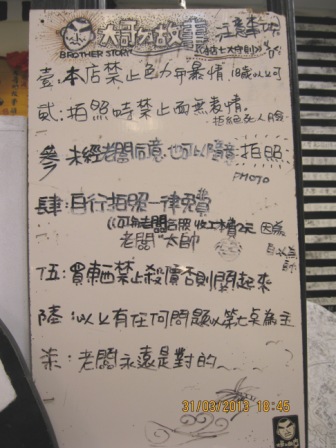 大哥的故事
BROTHER STORY
(本店七大守則)
壹:本店禁止色力年暴情 18歲以上可
貳:拍照時禁止面無表情.
拒絕死人臉
參 未經老闆同意.也可以隨意拍照
PM070
肆:自行拍照一律免費
(如與老闆合照 收工本費2元 因為
老闆"太帥
伍:買東西禁止殺價否則關起來
陸:以上有任何問題以第七桌為主
柒:老闆永遠是對的
31/03/2013 10:45